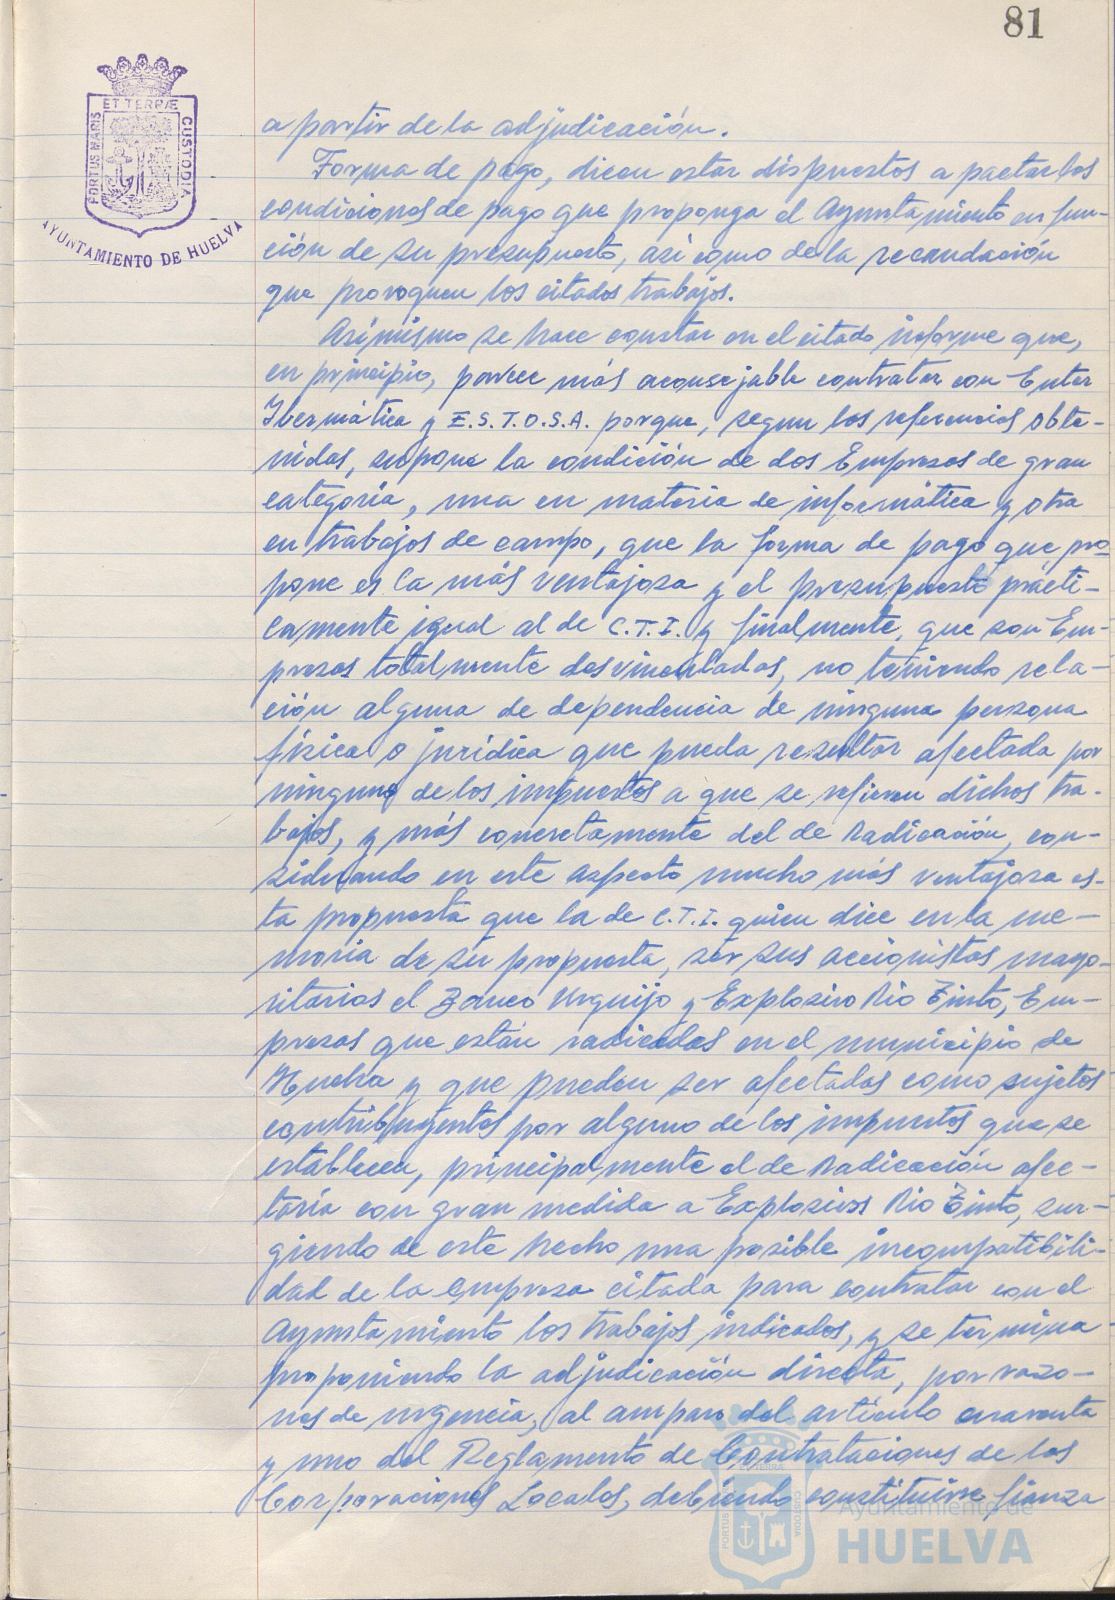 81
ET TERRÆ
PORTUS MARIS
CUSTODIA
AYUNTAMIENTO DE HUELVA
a partir de la adjudicación.
Forma de pago, dicen estar dispuestos a pactar las
condiciones de pago que proponga el Ayuntamiento en fun-
ción de su presupuesto, asi como de la recaudación
que provoquen los citados trabajos.
Asimismo se hace constar en el citado informe que,
en principio, parece más aconsejable contratar con Enter
Ibermática y E.S.T.O.S.A. porque, segun las referencias obte-
nidas, supone la condición de dos Empresas de gran
categoría, una en materia de informática y otra
en trabajos de campo, que la forma de pago que pro-
pone es la más ventajosa y el presupuesto prácti-
camente igual al de C.T.I. y finalmente, que son Em-
presas totalmente desvinculadas, no teniendo rela-
ción alguna de dependencia de ninguna persona
física o jurídica que pueda resultar afectada por
ninguno de los impuestos a que se refieren dichos tra-
bajos, y más concretamente del de Radicación, con-
siderando en este aspecto mucho más ventajosa es-
ta propuesta que la de C.T.I. quien dice en la me-
moria de su propuesta, ser sus accionistas mayo-
ritarios el Banco Urquijo y Explosivo Rio Tinto, Em-
presas que están radicadas en el municipio de
Huelva y que pueden ser afectadas como sujetos
contribuyentes por alguno de los impuestos que se
establecen, principalmente el de Radicación afec-
taría con gran medida a Explosivos Rio Tinto, sur-
giendo de este hecho una posible incompatibili-
dad de la empresa citada para contratar con el
Ayuntamiento los trabajos indicados, y se termina
proponiendo la adjudicación directa, por razo-
nes de urgencia, al amparo del artículo cuarenta
y uno del Reglamento de Contrataciones de las
Corporaciones Locales, debiendo constituirse fianza
PORTUS
CUSTODIA
Ayuntamiento de
HUELVA